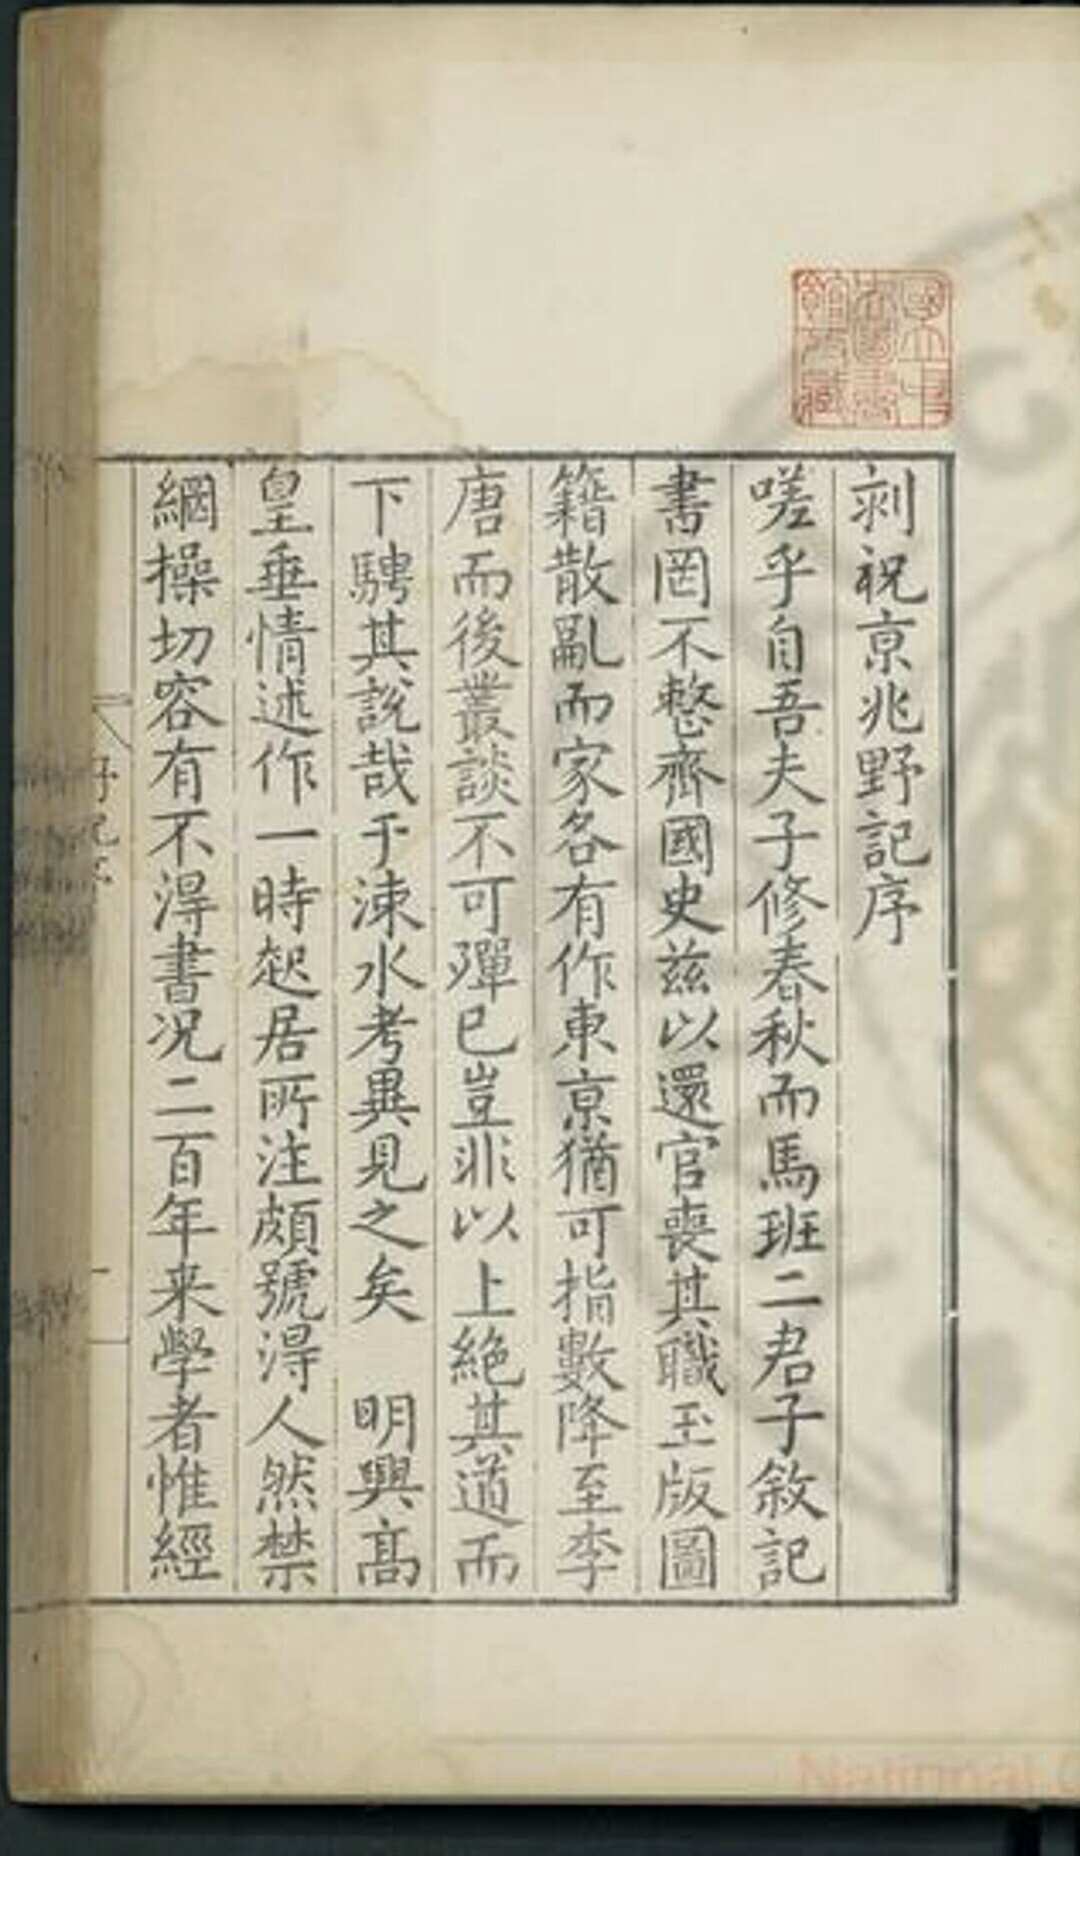 剥祝京兆野記序
嗟乎自吾夫子修春秋而馬班二君子敘記
書罔不整齊國史茲以還官喪其職玉版圖
籍散亂而家各有作東京猶可指數降至李
唐而後叢談不可殫已豈非以上絶其道而
下騁其說哉于涑水考異見之矣 明興高
皇垂情述作一時起居所注頗號得人然禁
網操切容有不得書况二百年来學者惟經
國立中央圖書館收藏
National